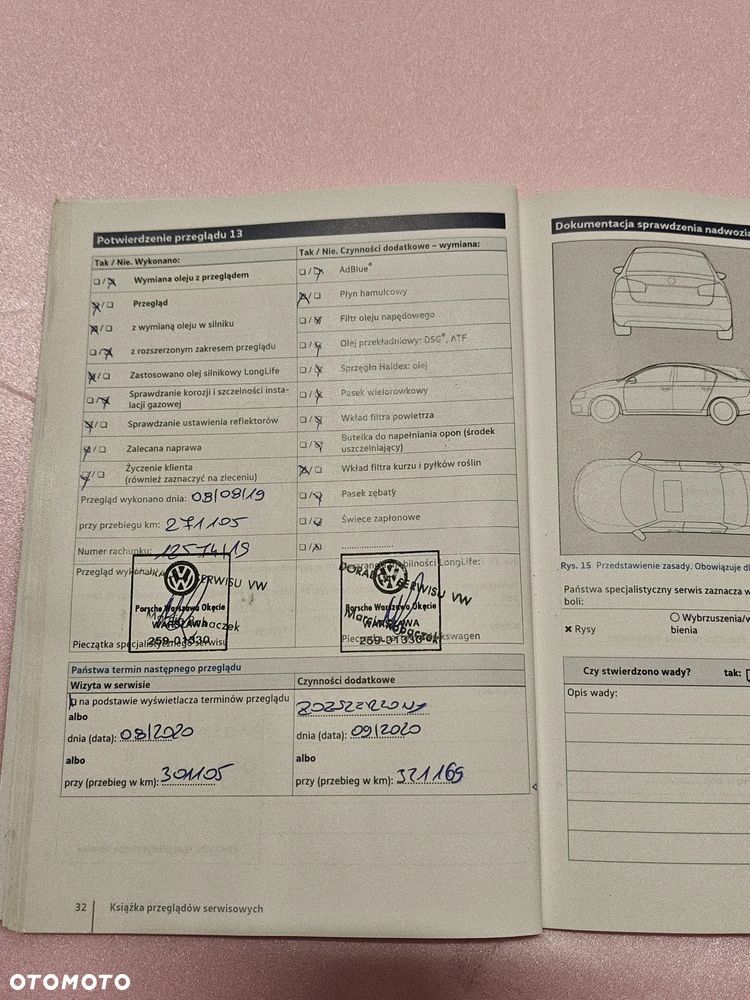 Potwierdzenie przeglądu 13
Tak / Nie. Wykonano:
Wymiana oleju z przeglądem
Przegląd
z wymianą oleju w silniku
z rozszerzonym zakresem przeglądu
Zastosowano olej silnikowy LongLife
Sprawdzanie korozji i szczelności insta-
lacji gazowej
Sprawdzanie ustawienia reflektorów
Zalecana naprawa
Życzenie klienta
(również zaznaczyć na zleceniu)
Przegląd wykonano dnia: 08/08/19
przy przebiegu km: 271105
Numer rachunku: 12574/19
Przegląd
SERWISU VW
Porsche Warszawa Okęcie
WARSZAWA
259-01330
Pieczątka specjalistycznego serwisu
Tak / Nie. Czynności dodatkowe – wymiana:
AdBlue®
Płyn hamulcowy
Filtr oleju napędowego
Olej przekładniowy: DSG®, ATF
Sprzęgło Haldex: olej
Pasek wielorowkowy
Wkład filtra powietrza
Butelka do napełniania opon (środek
uszczelniający)
Wkład filtra kurzu i pyłków roślin
Pasek zębaty
Świece zapłonowe
LongLife:
DORADCA SERWISU VW
Porsche Warszawa Okęcie
WARSZAWA
259-01330
Państwa termin następnego przeglądu
Wizyta w serwisie
na podstawie wyświetlacza terminów przeglądu
albo
dnia (data): 08/2020
albo
przy (przebieg w km): 301105
Czynności dodatkowe
ROZSZERZONY
dnia (data): 09/2020
albo
przy (przebieg w km): 321169
32 Książka przeglądów serwisowych
Dokumentacja sprawdzenia nadwozia
Rys. 15 Przedstawienie zasady. Obowiązuje
Państwa specjalistyczny serwis zaznacza
boli:
× Rysy
Wybrzuszenia/
bienia
Czy stwierdzono wady? tak:
Opis wady:
OTOMOTO